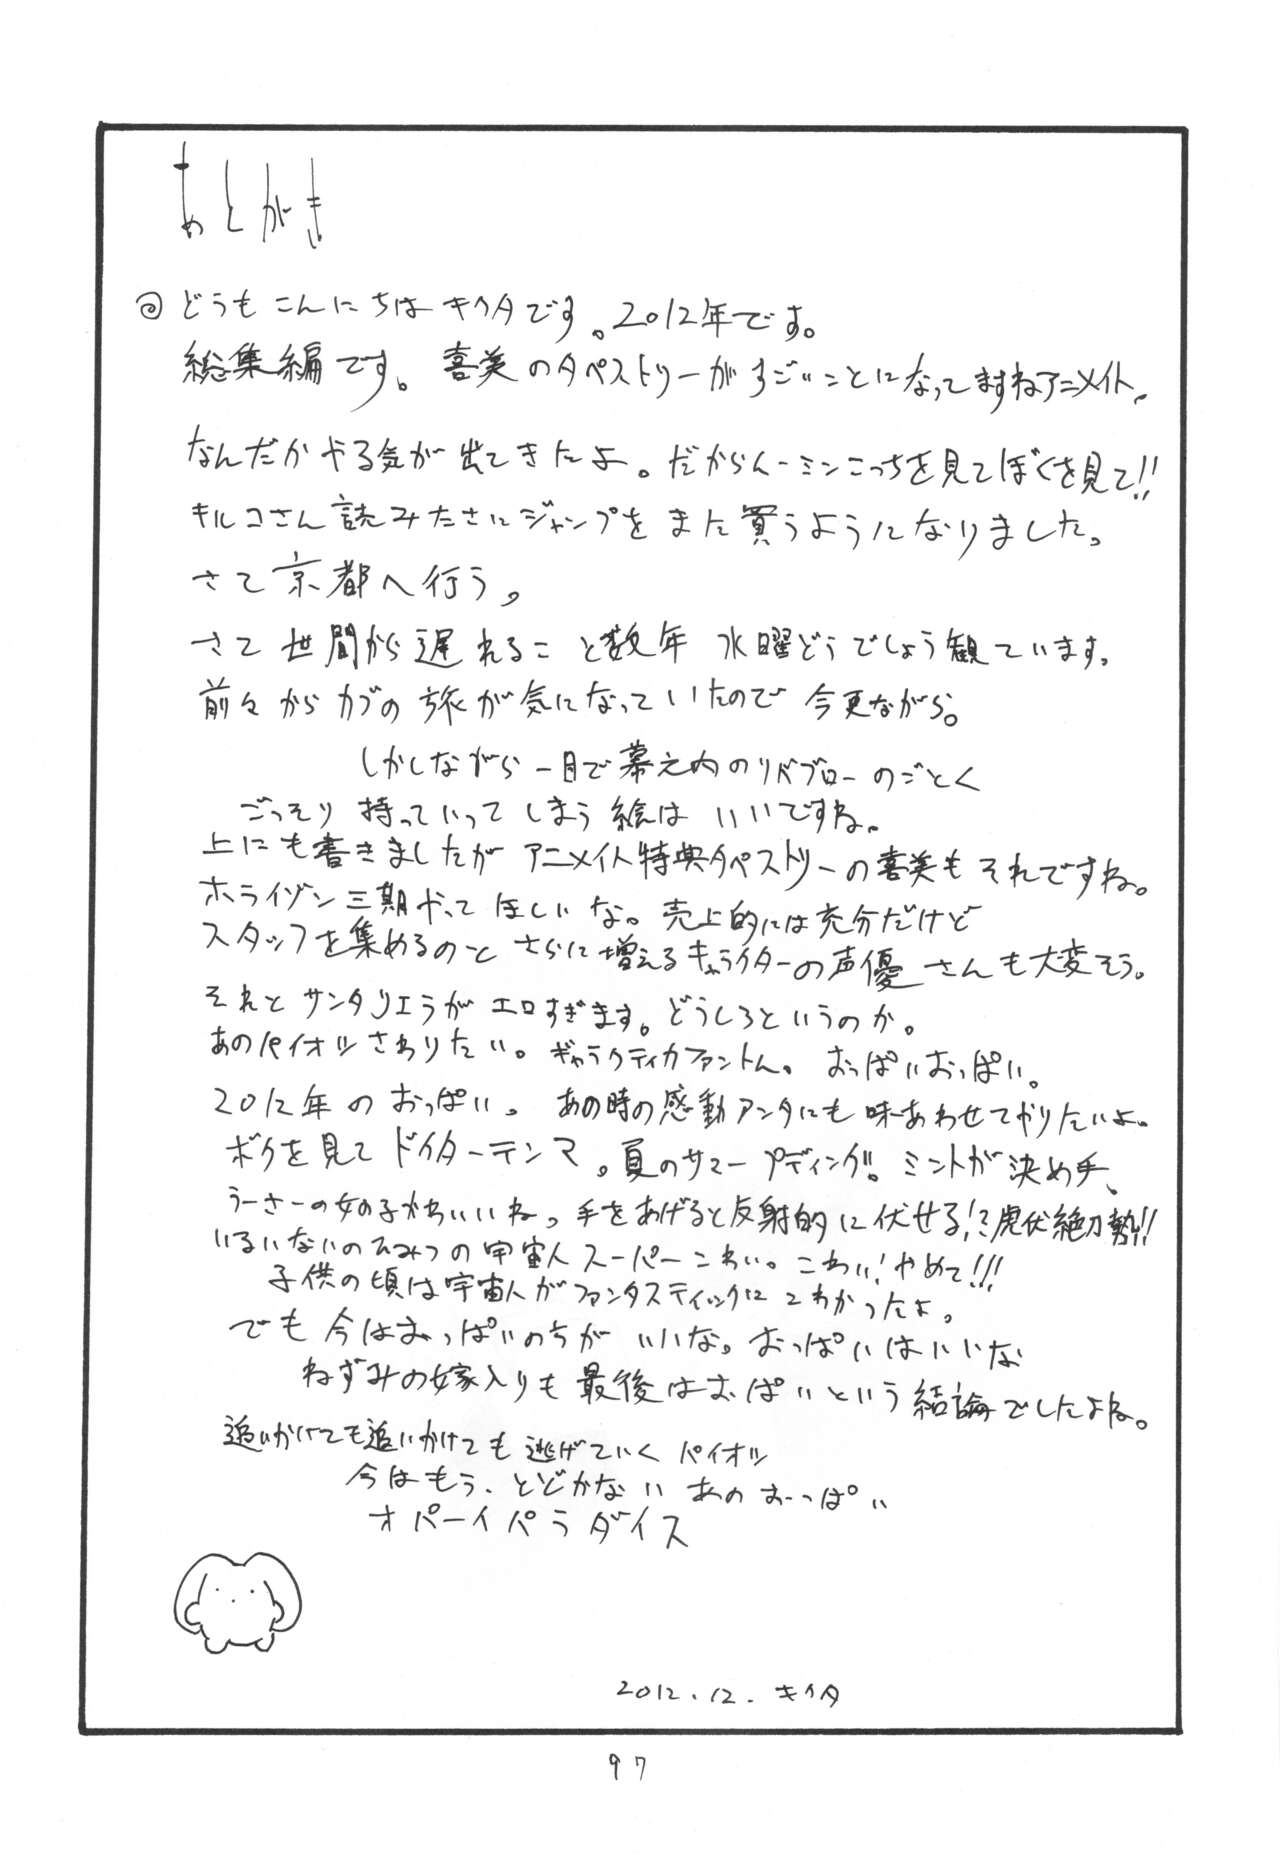 あとがき
どうもこんにちはキクタです。2012年です。
総集編です。喜美のタペストリーがすごいことになってますねアニメイト、
なんだかやる気が出てきたよ。だからんーミンこっちを見てぼくを見て!!
キルコさん読みたさにジャンプをまた買うようになりました。
さて京都へ行う。
さて世間から遅れること数年 水曜どうでしょう観ています。
前々からカブの旅が気になっていたので今更ながら。
しかしながら一目で幕之内のリバブローのごとく
ごっそり持っていってしまう絵はいいですね。
上にも書きましたがアニメイト特典タペストリーの喜美もそれですね。
ホライゾン三期やってほしいな。売上的には充分だけど
スタッフを集めるのとさらに増えるキャライターの声優さんも大変そう。
それとサンタリエラがエロすぎます。どうしろというのか。
あのパイオツさわりたい。ギャラクティカファントム。おっぱいおっぱい。
2012年のおっぱい。あの時の感動アンタにも味あわせてやりたいよ。
ボクを見てドイターテンマ。夏のサマープディング!!。ミントが決め手、
うーさーの女の子かわいいね。手をあげると反射的に伏せる!?虎伏絶刀勢!!
いるいないのひみつの宇宙人スーパーこわい。こわい!やめて!!!
子供の頃は宇宙人がファンタスティックにこわかったよ。
でも今はおっぱいのちがいいな。おっぱいはいいな
ねずみの嫁入りも最後はおっぱいという結論でしたよね。
追いかけても追いかけても逃げていくパイオツ
今はもう、とどかないあのおーっぱい
オパーイパラダイス
2012.12.キクタ
97